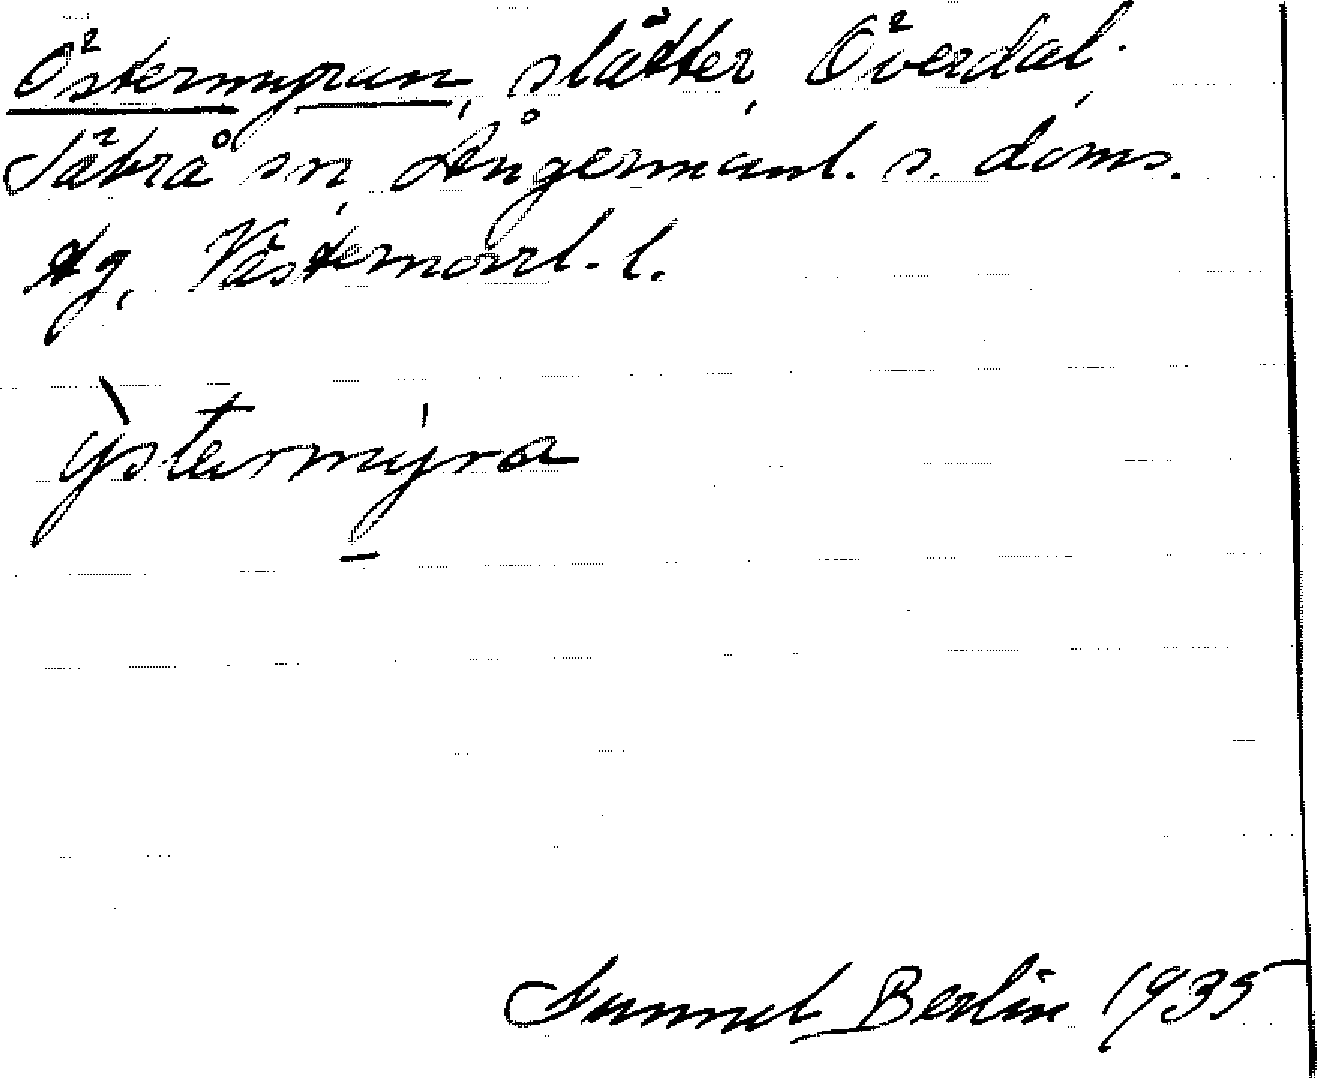 Östermyran, slåtter, Överdal,
Säbrå sn, Ångermanl. s. doms.
tg, Västernorrl. l.
ỳstermyra
Gunnel Berlin 1935